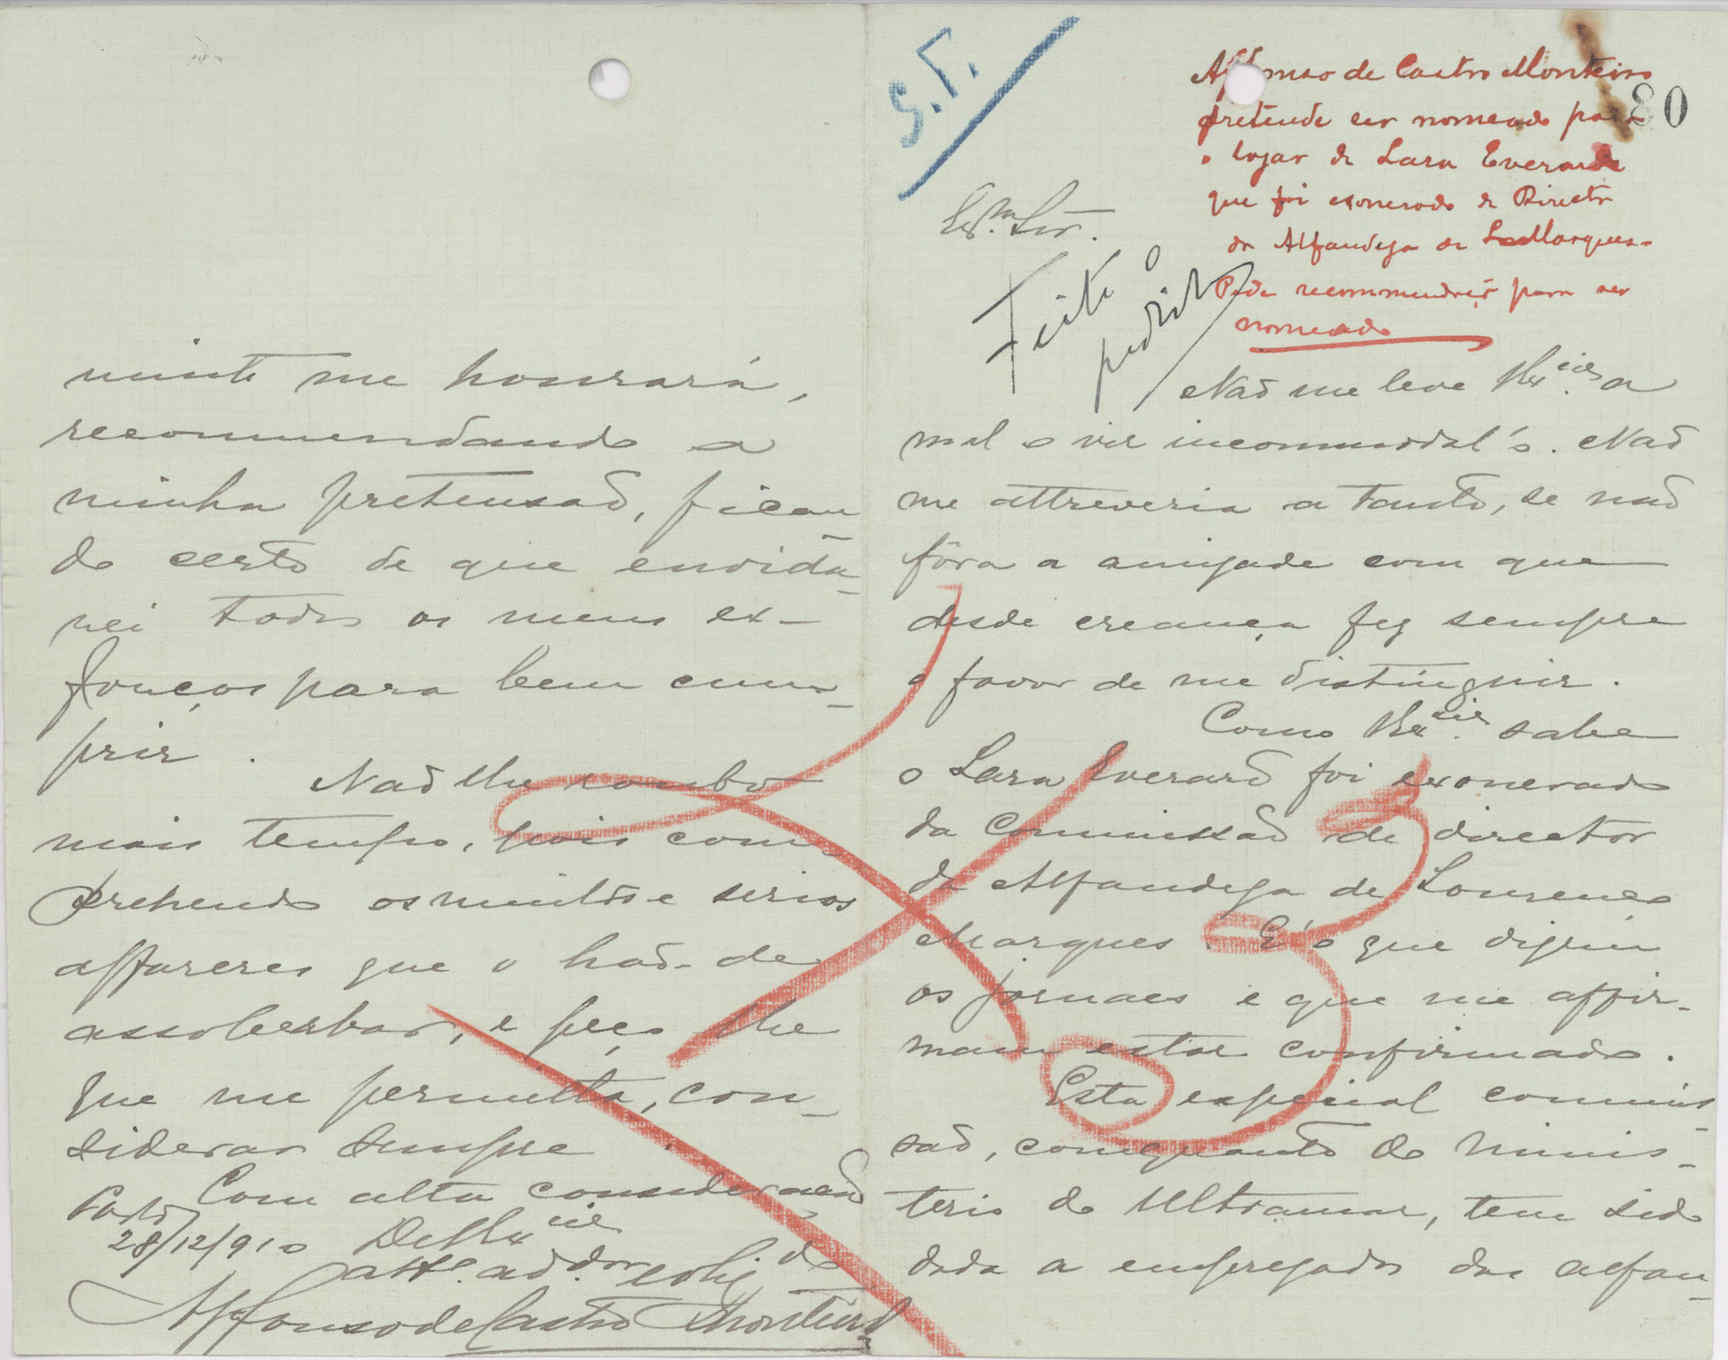 S.T.
Affonso de Castro Monteiro
pretende ser nomeado para
o logar de Lara Everard
que foi exonerado de Director
da Alfandega de L. Marques.
Pede recommendação para ser
nomeado
80
Ex.mo Snr.
Feito o
pedido
Não me leve V. Ex.cia a
mal o vir incommodal'o. Não
me attreveria a tanto, se não
fôra a amizade com que
desde creança fez sempre
o favor de me distinguir.
Como V. Ex.cia sabe
o Lara Everard foi exonerado
da commissão de director
da Alfandega de Lourenço
Marques. É o que dizem
os jornaes e que me affir-
mam estar confirmado.
Esta especial commis-
são, comquanto do minis-
terio do Ultramar, tem sido
dada a empregados das alfan-
mente me honrará,
recommendando a
minha pretensão, fican
do certo de que envida-
rei todos os meus ex-
forços para bem cum-
prir.
Não lhe roubo
mais tempo, pois com-
prehendo os muitos e serios
affareres que o hão-de
assoberbar, e peço lhe
que me permitta, con-
siderar sempre
Com alta consideração
Porto
28/12/910
De V. Ex.cia
att.o ad.dor obrig.do
Affonso de Castro Monteiro